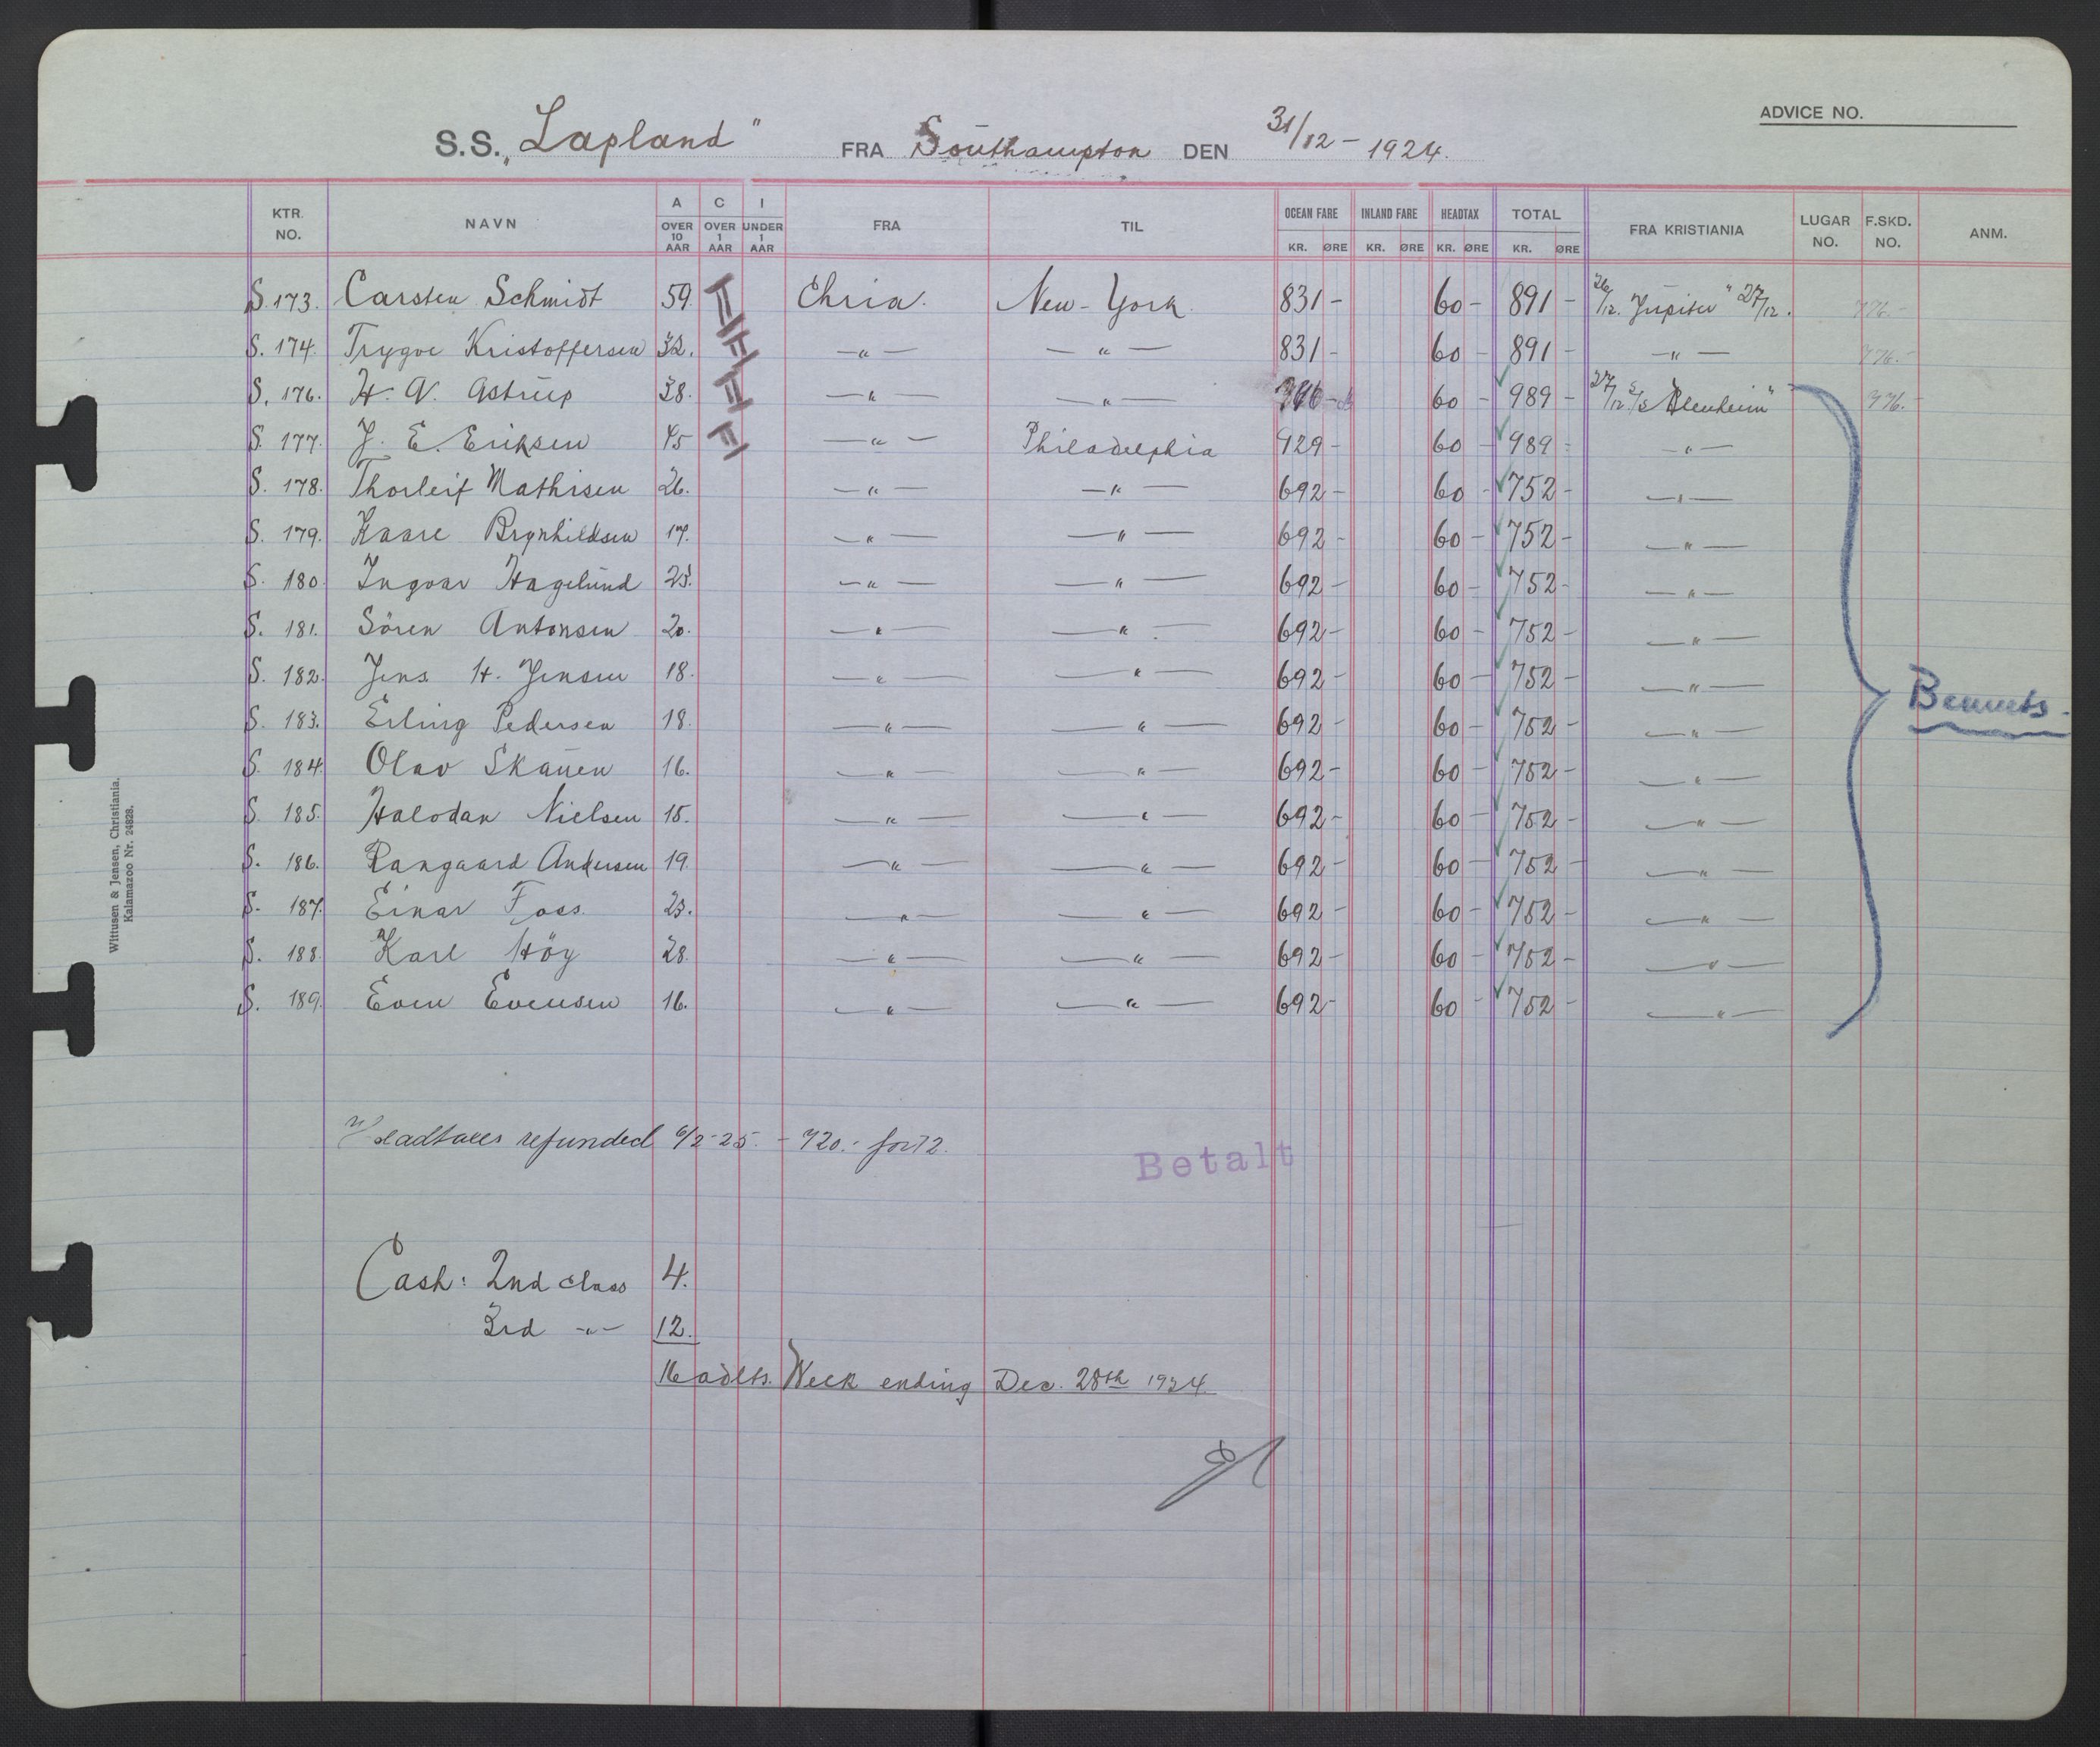 ADVICE NO.
S.S. „Lapland" FRA Southampton DEN 31/12 - 1924.
KTR. NO. NAVN A OVER 10 AAR C OVER 1 AAR I UNDER 1 AAR FRA TIL OCEAN FARE KR. ØRE INLAND FARE KR. ØRE HEADTAX KR. ØRE TOTAL KR. ØRE FRA KRISTIANIA LUGAR NO. F.SKD. NO. ANM.
S. 173. Carsten Schmidt 59. II Chria. New-York. 831 - 60 - 891 - 26/12. „Jupiter" 27/12. 776.-
S. 174. Trygve Kristoffersen 32. II —"— —"— 831 - 60 - 891 - —"— 776.-
S. 176. H. V. Astrup 38. II —"— —"— 60 - 989 - 27/12 S/S „Blenheim" 776.-
S. 177. J. E. Eriksen 45 II —"— Philadelphia 929 - 60 - 989 - —"—
S. 178. Thorleif Mathisen 26. —"— —"— 692 - 60 - 752 - —"—
S. 179. Kaare Brynhildsen 17. —"— —"— 692 - 60 - 752 - —"—
S. 180. Ingvar Hagelund 23. —"— —"— 692 - 60 - 752 - —"—
S. 181. Sören Antonsen 20. —"— —"— 692 - 60 - 752 - —"—
S. 182. Jens H. Jensen 18. —"— —"— 692 - 60 - 752 - —"—
S. 183. Erling Pedersen 18. —"— —"— 692 - 60 - 752 - —"—
Bennets.
S. 184. Olav Skauen 16. —"— —"— 692 - 60 - 752 - —"—
S. 185. Halvdan Nielsen 15. —"— —"— 692 - 60 - 752 - —"—
S. 186. Rangaard Andersen 19. —"— —"— 692 - 60 - 752 - —"—
S. 187. Einar Foss. 23. —"— —"— 692 - 60 - 752 - —"—
S. 188. Karl Höy 28. —"— —"— 692 - 60 - 752 - —"—
S. 189. Even Evensen 16. —"— —"— 692 - 60 - 752 - —"—
Wittusen & Jensen, Christiania.
Kalamazoo Nr. 24828.
Headtaxes refunded 6/2-25. - 720.- for 12.
Betalt
Cash: 2nd class 4.
3rd -"- 12.
16 adlts. Week ending Dec. 28th 1924.